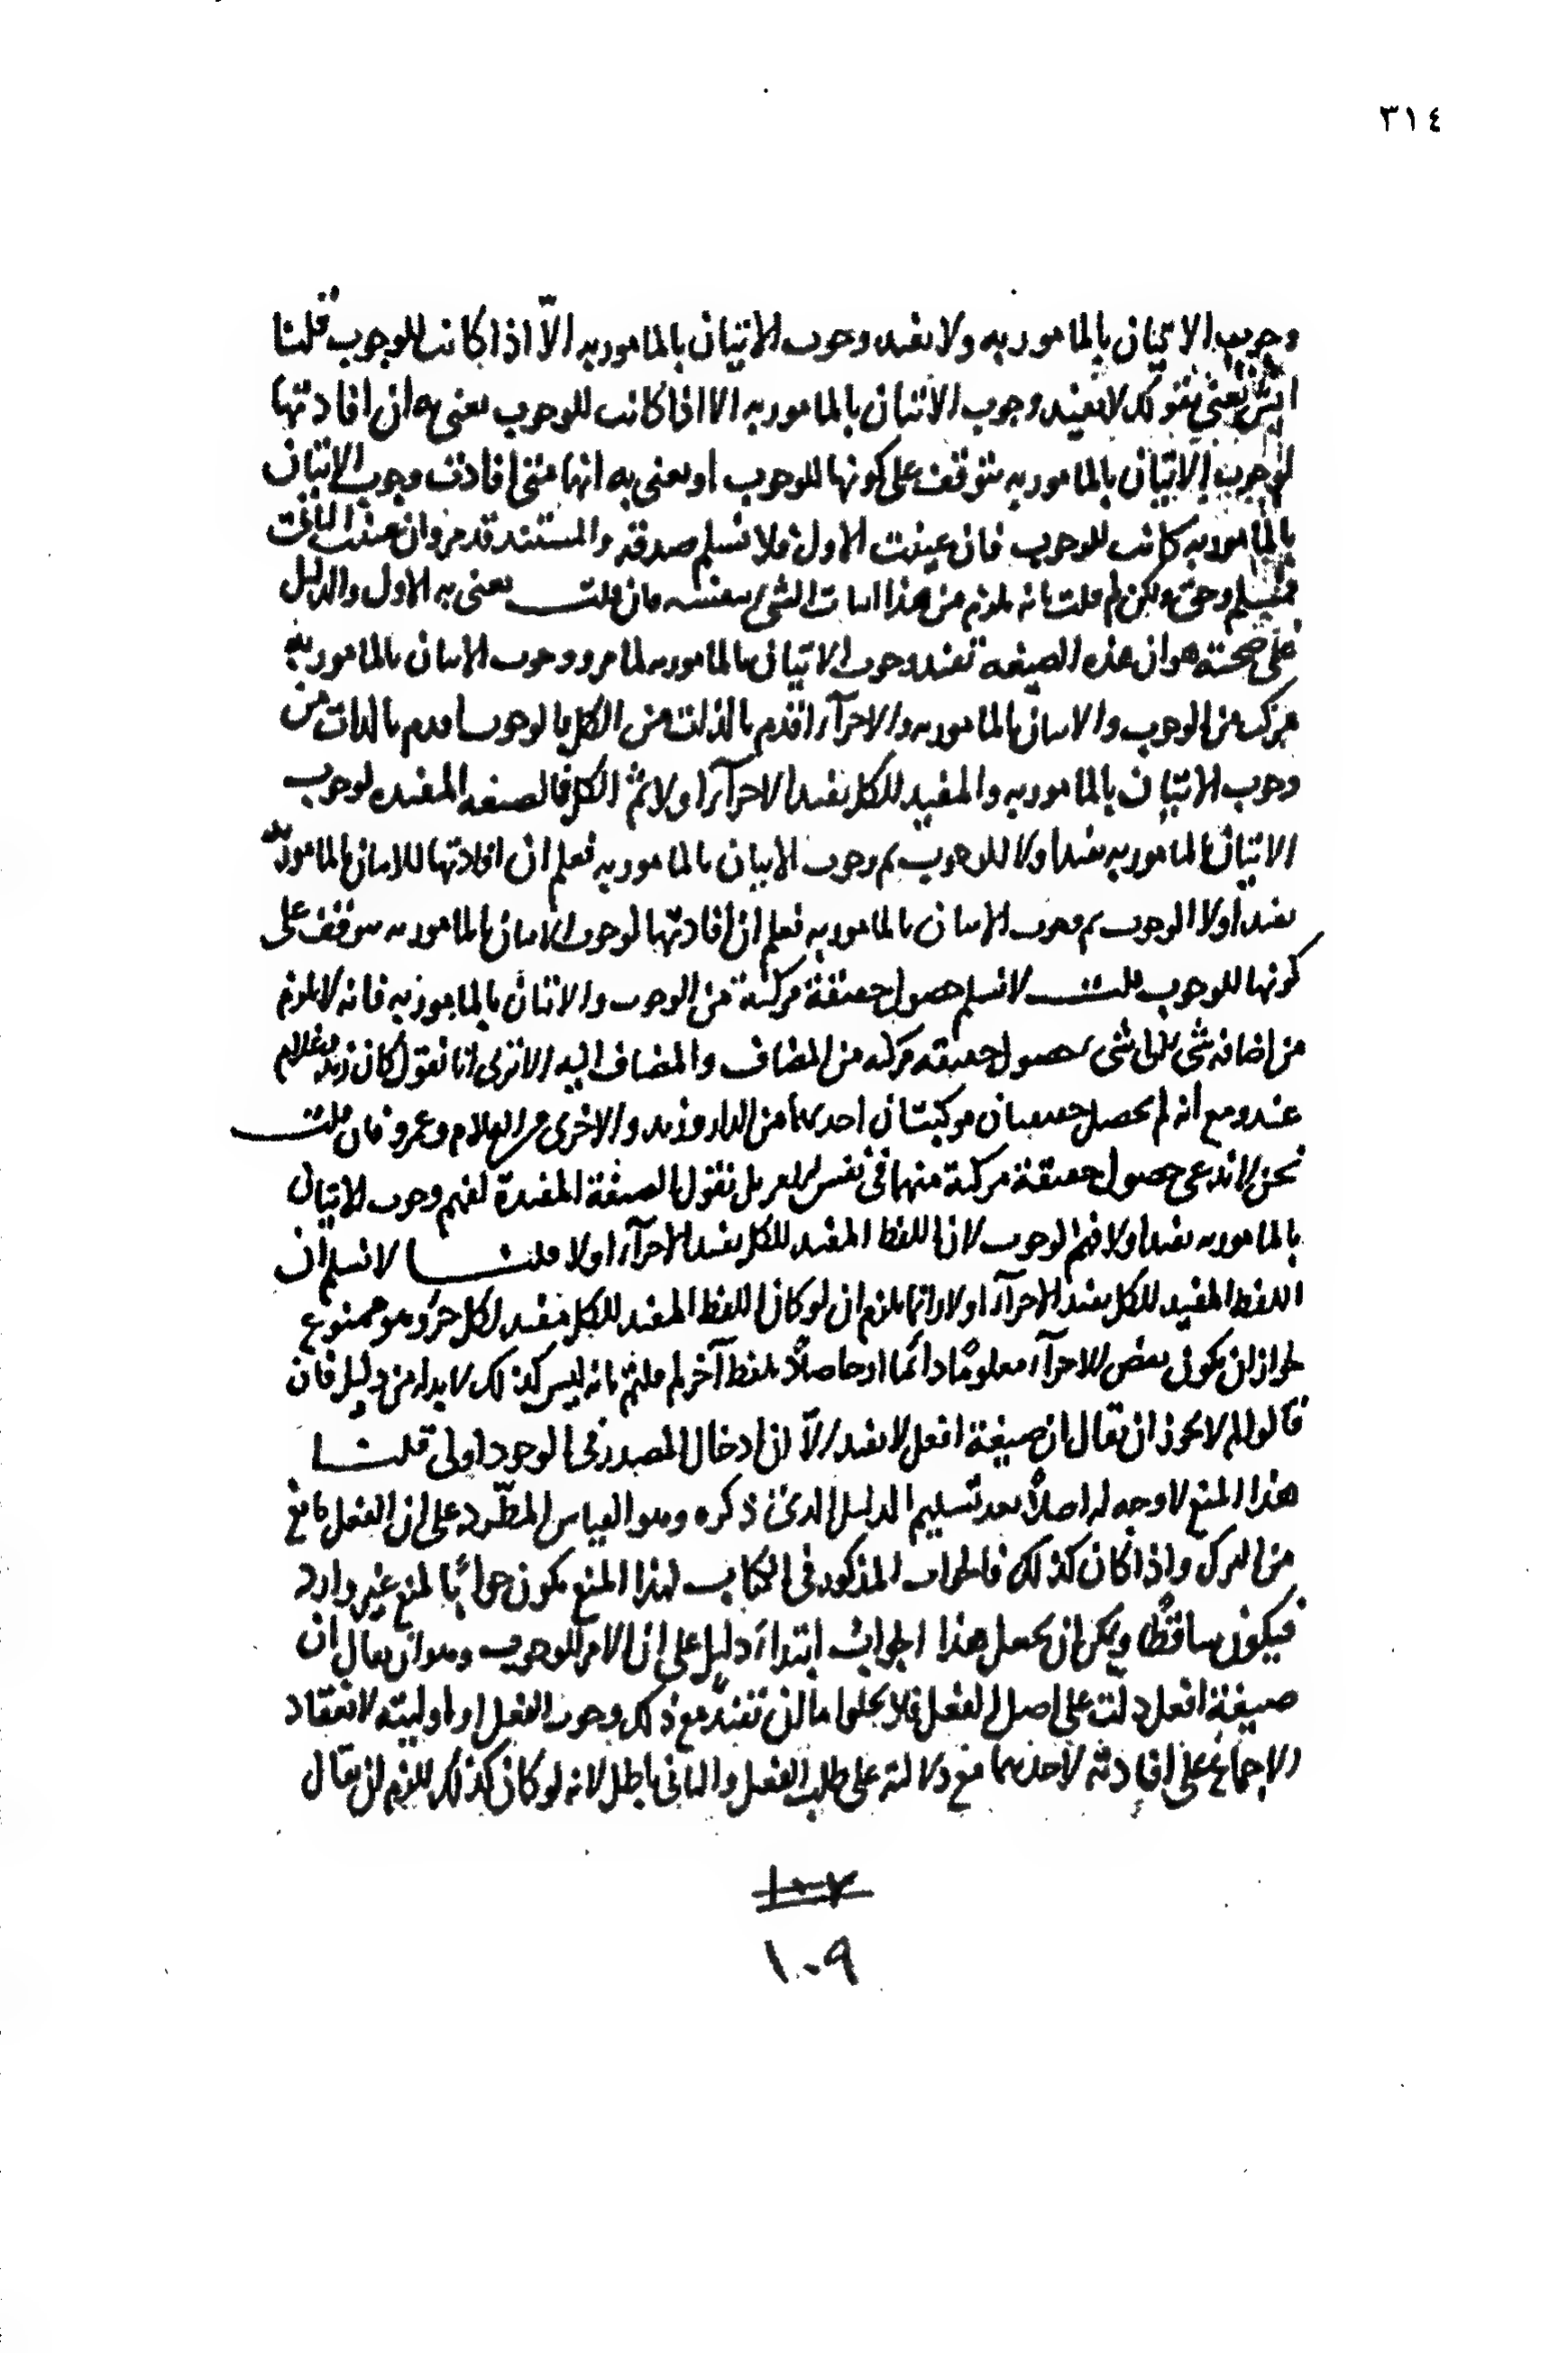 ٣١٤
وجوب الاتيان بالمامور به ولا يفيد وجوب الاتيان بالمامور به الّا اذا كانت للوجوب قلنا
ايش تعني بقولك لا يفيد وجوب الاتيان بالمامور به الا اذا كانت للوجوب يعنى به ان افادتها
لوجوب الاتيان بالمامور به تتوقف على كونها للوجوب او يعنى به انها متى افادت وجوب الاتيان
بالمامور به كانت للوجوب فان عنيت الاول فلا نسلم صدقه والمستند قد مر وان عنيت الثانى
فمسلم وحق ولكن لم قلت بانه يلزم من هذا اثبات الشى بنفسه فان قلت يعنى به الاول والدليل
على صحته هو ان هذه الصيغة تفيد وجوب الاتيان بالمامور به لما مر ووجوب الاتيان بالمامور به
مركب من الوجوب والاتيان بالمامور به والاجزآء اقدم بالذات من الكل فالوجوب اقدم بالذات من
وجوب الاتيان بالمامور به والمفيد للكل يفيد الاجزآء اولا ثم الكل فالصيغة المفيده لوجوب
الاتيان بالمامور به يفيد اولا للوجوب ثم وجوب الاتيان بالمامور به فعلم ان افادتها للاتيان بالمامور به
يفيد اولا الوجوب ثم وجوب الاتيان بالمامور به فعلم ان افادتها لوجوب الاتيان بالمامور به يتوقف على
كونها للوجوب قلت لا نسلم حصول حقيقة مركبة من الوجوب والاتيان بالمامور به فانه لا يلزم
من اضافة شى الى شى حصول حقيقه مركبه من المضاف والمضاف اليه الا ترى انا نقول كان زيد غلام
عمرو مع انه لم يحصل حقيقتان مركبتان احديهما من الدار وزيد والاخرى من الغلام وعمرو فان قلت
نحن لا ندعى حصول حقيقة مركبة منهما فى نفس الامر بل نقول الصيغة المفيدة لفهم وجوب الاتيان
بالمامور به يفيد اولا فهم الوجوب لان اللفظ المفيد للكل يفيد الاجزآء اولا قلنا لا نسلم ان
اللفظ المفيد للكل يفيد الاجزآء اولا وانما يلزم ان لو كان اللفظ المفيد للكل مفيد لكل جزء وهو ممنوع
لجواز ان يكون بعض الاجزآء معلومًا دائما او حاصلًا بلفظ آخر لم قلتم بانه ليس كذلك لا بد له من دليل فان
قالوا لم لا يجوز ان يقال ان صيغة افعل لا يفيد الّا ان ادخال المصدر فى الوجود اولى قلنا
هذا المنع لا وجه له اصلًا بعد تسليم الدليل الذى ذكره وهو القياس المطّرد على ان الفعل مانع
من الترك واذا كان كذلك فالجواب المذكور فى الكتاب لهذا المنع يكون جوابًا لمنع غير وارد
فيكون ساقطًا ويمكن ان يجعل هذا الجواب ابتداء دليل على ان الامر للوجوب وهو ان يقال ان
صيغة افعل دلت على اصل الفعل فلا يخلوا ما ان تفيد مع ذلك وجوب الفعل او اوليته لانعقاد
الاجماع على افادته لاحدهما مع دلالته على طلب الفعل والثانى باطل لانه لو كان كذلك للزم ان يقال
١٠٧
١٠٩